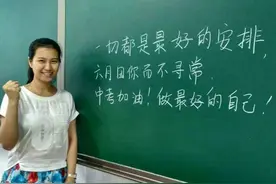 一切都是最好的安排，
六月因你而不寻常
中考加油！做最好的自己！